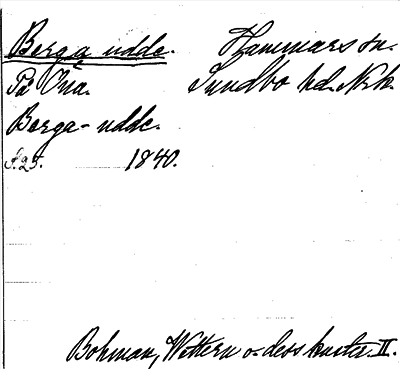 Berga udde. Hammars sn.
På Ona. Sundbo hd. Nrk.
Berga-udde.
s. 25. 1840.
Bohman, Wettern o. dess kuster. II.